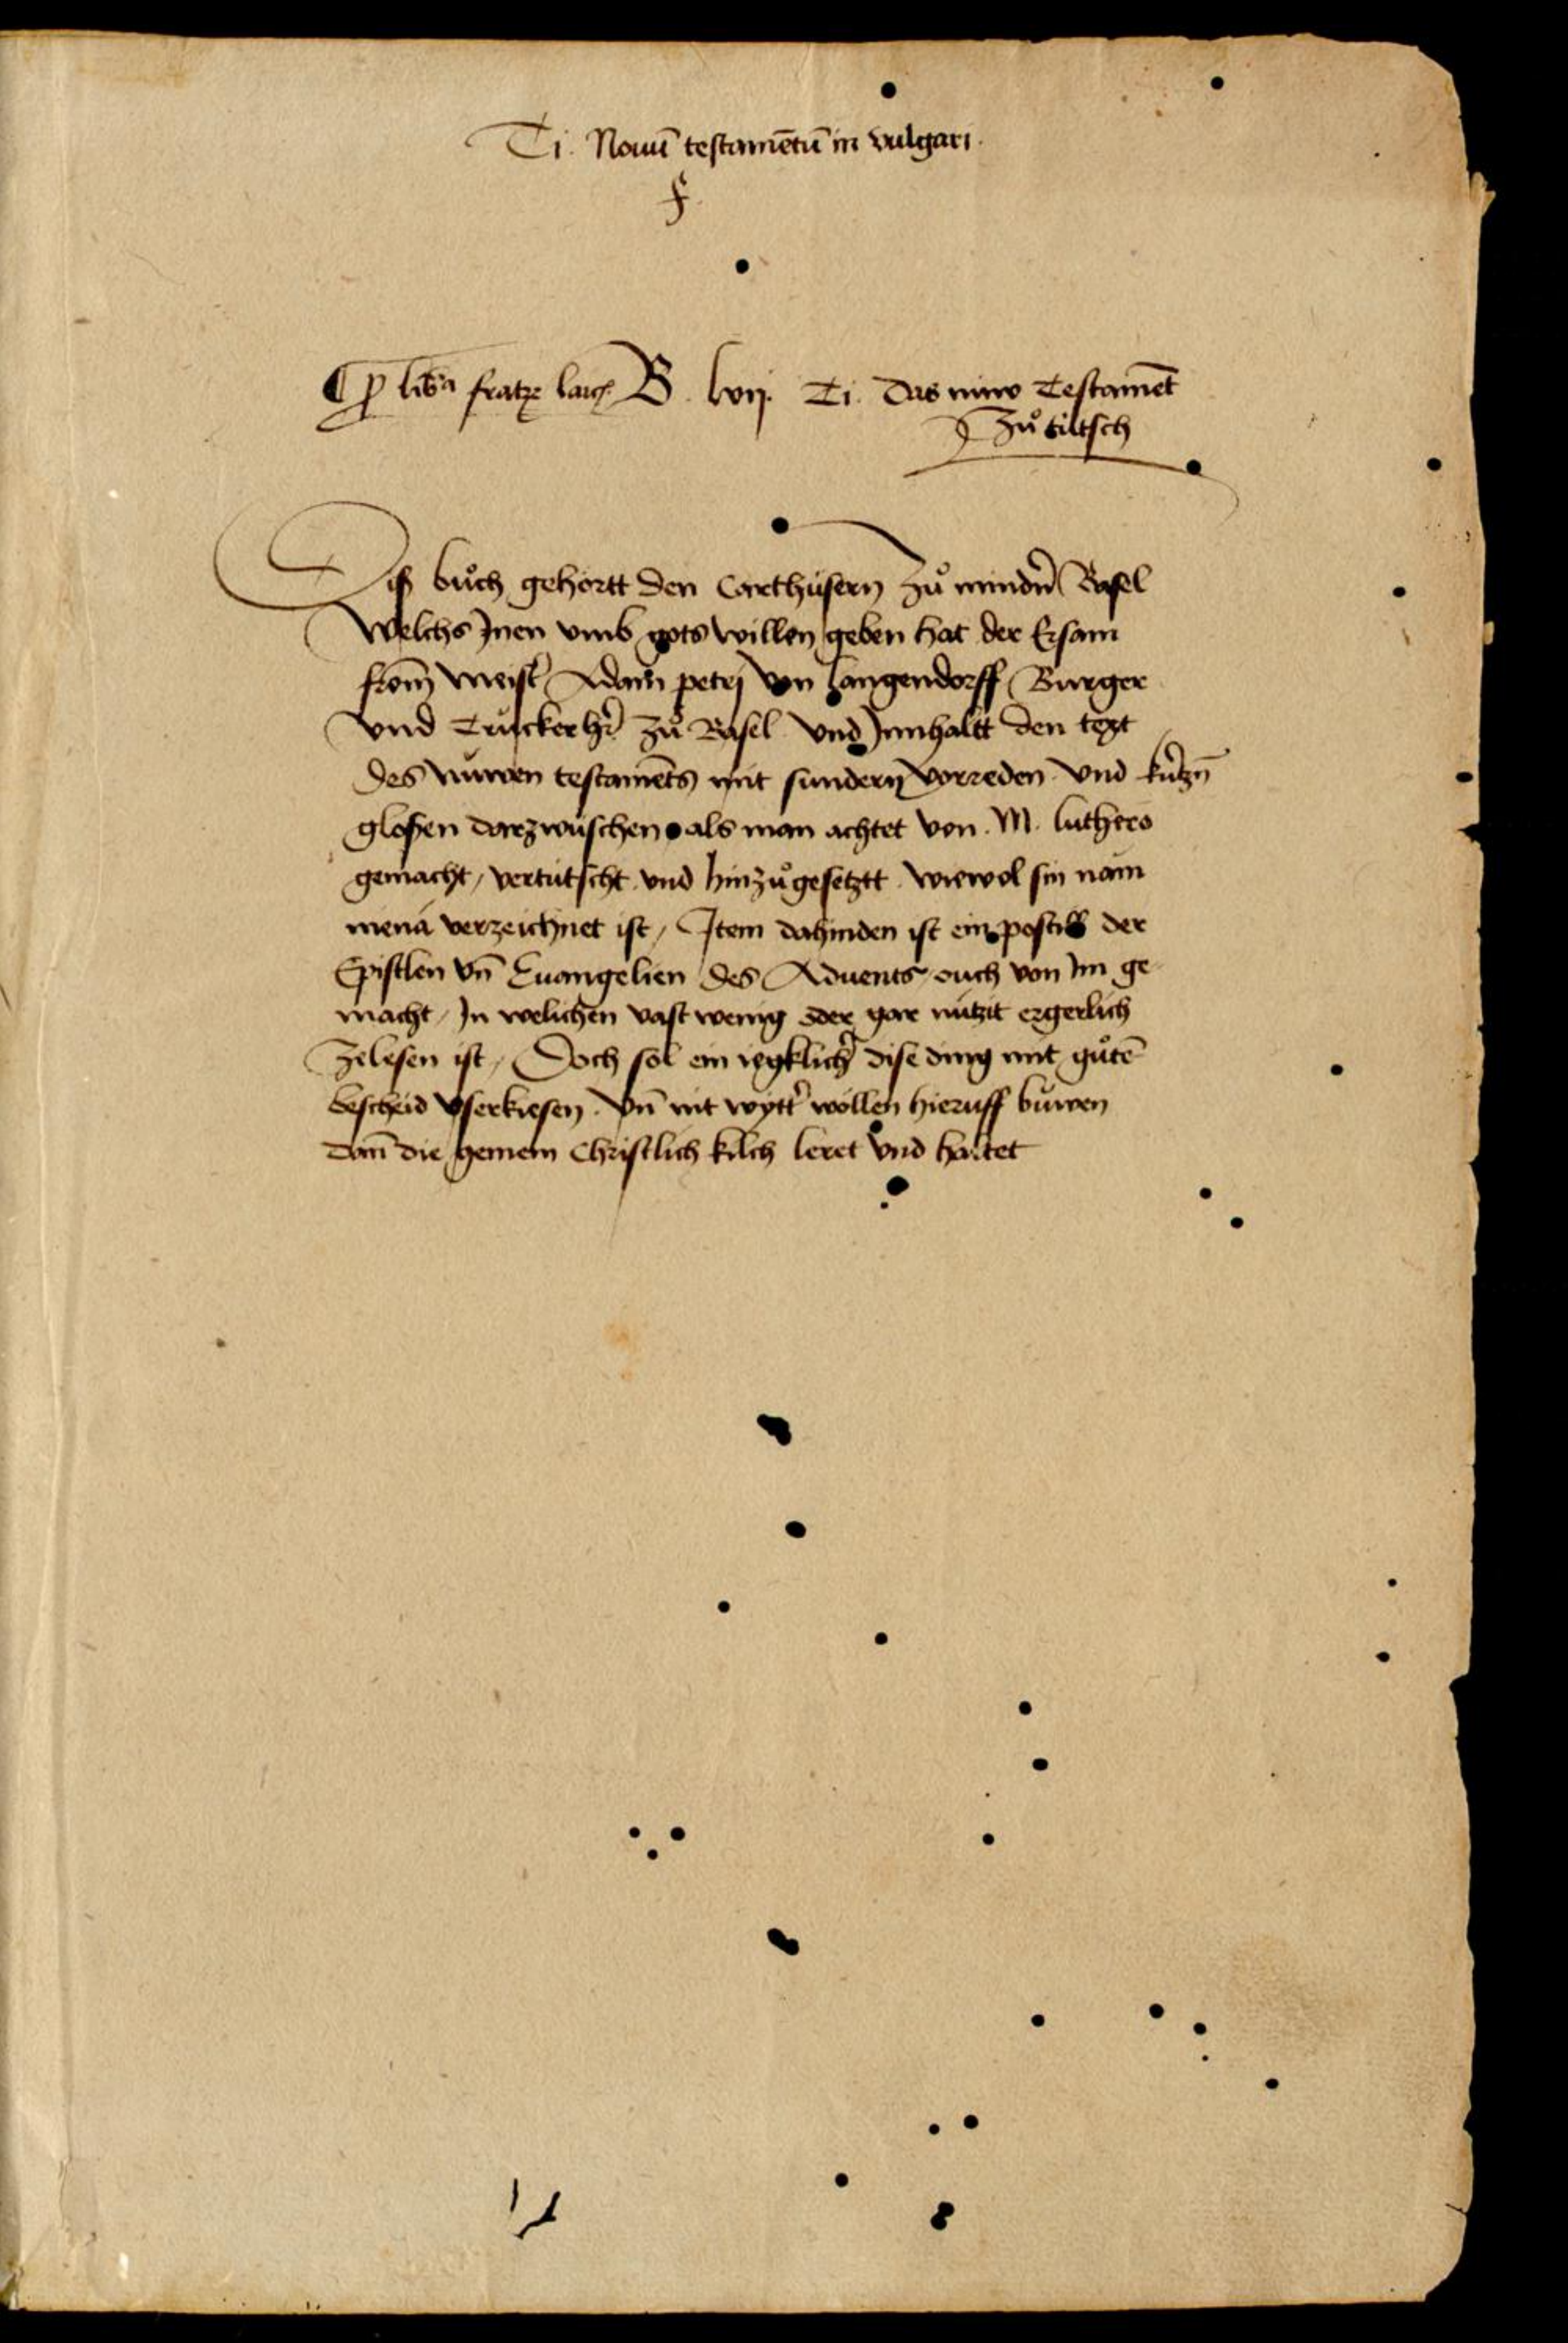 Ti. Nouū testamētū in vulgari.
¶ p̱ libᵃ fratꝝ laicꝝ B. lvij. Ti. Das niiw Testamēt
Zuͦ tütsch
Diß buͦch gehortt den Carthúsern zuͦ mindn̄ Basel
Welchs Jnen vmb gots willen geben hat der Ersam
from̄ meist̉ Adam petrj von Langendorff Burger
vnd Trucker hr̄ zuͦ Basel vnd Jnnhaltt den text
des nüwen testamēts mit sundern vorreden vnd kur̉tzn̄
gloßen darzwúschen als man achtet von M. luthero
gemacht, vertútscht vnd hinzuͦgesetztt wiewol sin nam
niena verzeichnet ist, Jtem dahinden ist ein postill der
Epistlen vn̄ Euangelien des Aduents ouch von Jm ge
macht, Jn welichen vast wenig oder gar nützit ergerlich
zelesen ist, Doch sol ein iegklich̉ dise ding mit guͦtē
bescheid vserkiesen. Vn̄ nit wytt̉ wöllen hieruff buwen
dan̄ die gemein Christlich kilch leret vnd haltet